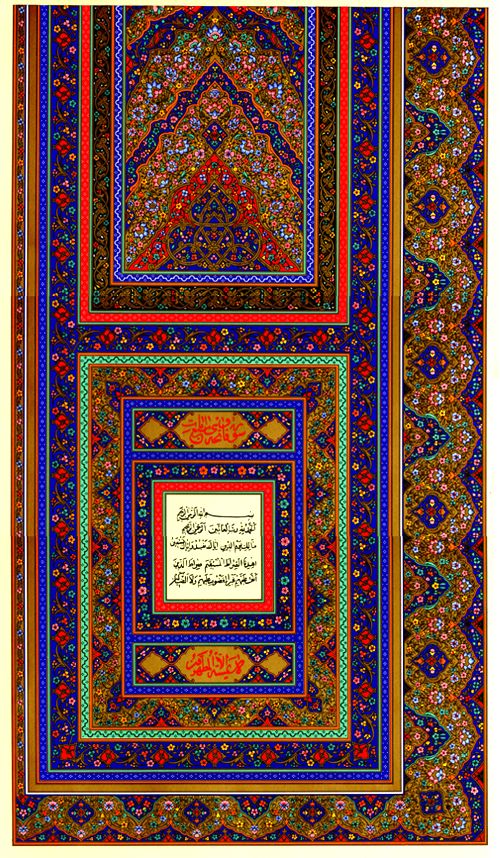 بسم الله الرحمن الرحيم
الحمد لله رب العالمين الرحمن الرحيم
مالك يوم الدين اياك نعبد واياك نستعين
اهدنا الصراط المستقيم صراط الذين
انعمت عليهم غير المغضوب عليهم ولا الضالين